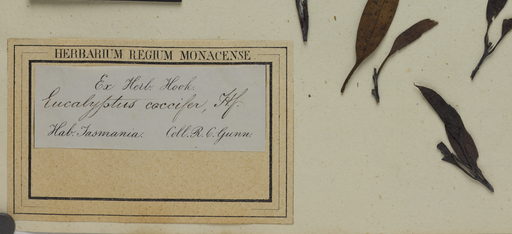 HERBARIUM REGIUM MONACENSE
Ex Herb. Hook.
Eucalyptus coccifer, Hf.
Hab. Tasmania. Coll. R. C. Gunn.